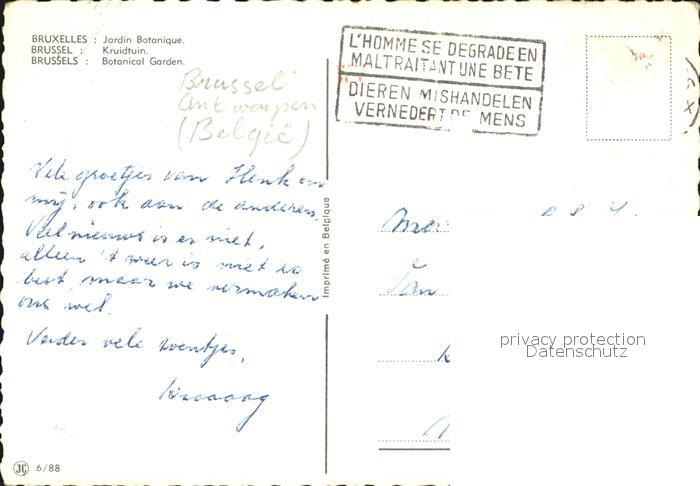 BRUXELLES : Jardin Botanique.
BRUSSEL : Kruidtuin.
BRUSSELS : Botanical Garden.
Brussel
Antwerpen
(België)
L'HOMME SE DEGRADE EN
MALTRAITANT UNE BETE
DIEREN MISHANDELEN
VERNEDERT DE MENS
Vele groetjes van Henk en
mij, ook aan de anderen.
Veel nieuws is er niet,
alleen 't weer is niet zo
best, maar we vermaken
ons wel.
Verder vele zoentjes,
Imprimé en Belgique
privacy protection
Datenschutz
JC 6/88